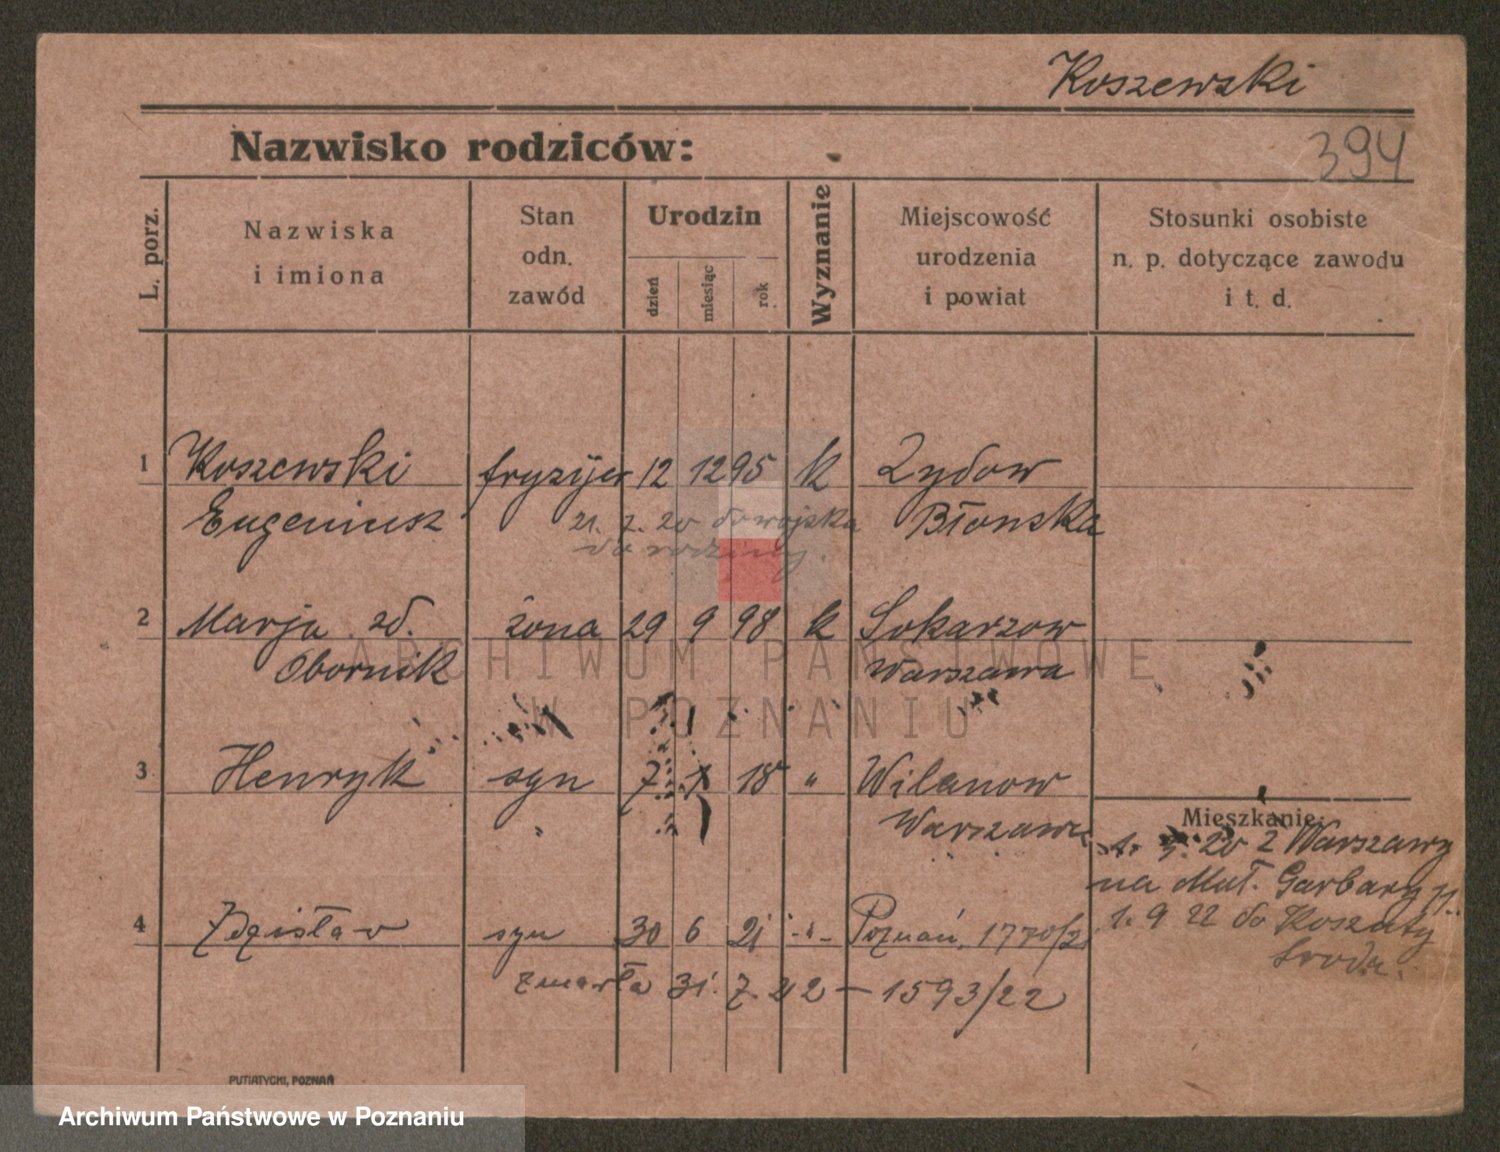 Koszewski
Nazwisko rodziców:
394
L. porz.
Nazwiska
i imiona
Stan
odn.
zawód
Urodzin
dzień
miesiąc
rok
Wyznanie
Miejscowość
urodzenia
i powiat
Stosunki osobiste
n. p. dotyczące zawodu
i t. d.
1 Koszewski fryzyer 12 12 95 k Zydow
Eugeniusz Błonska
21. 7. 20 do wojska
do rodziny.
2 Marja zd. żona 29 9 98 k Sokarzow
Obornik Warszawa
ARCHIWUM PAŃSTWOWE
W POZNANIU
3 Henryk syn 7 18 " Wilanow
Warszawa
Mieszkanie:
20 z Warszawy
na Mał. Garbary
4 Zdzisław syn 30 6 21 -"- Poznań, 1770/21
1. 9 22 do Koszuty
Sroda.
zmarła 31. 7. 22 - 1593/22
PUTIATYCKI, POZNAŃ
Archiwum Państwowe w Poznaniu